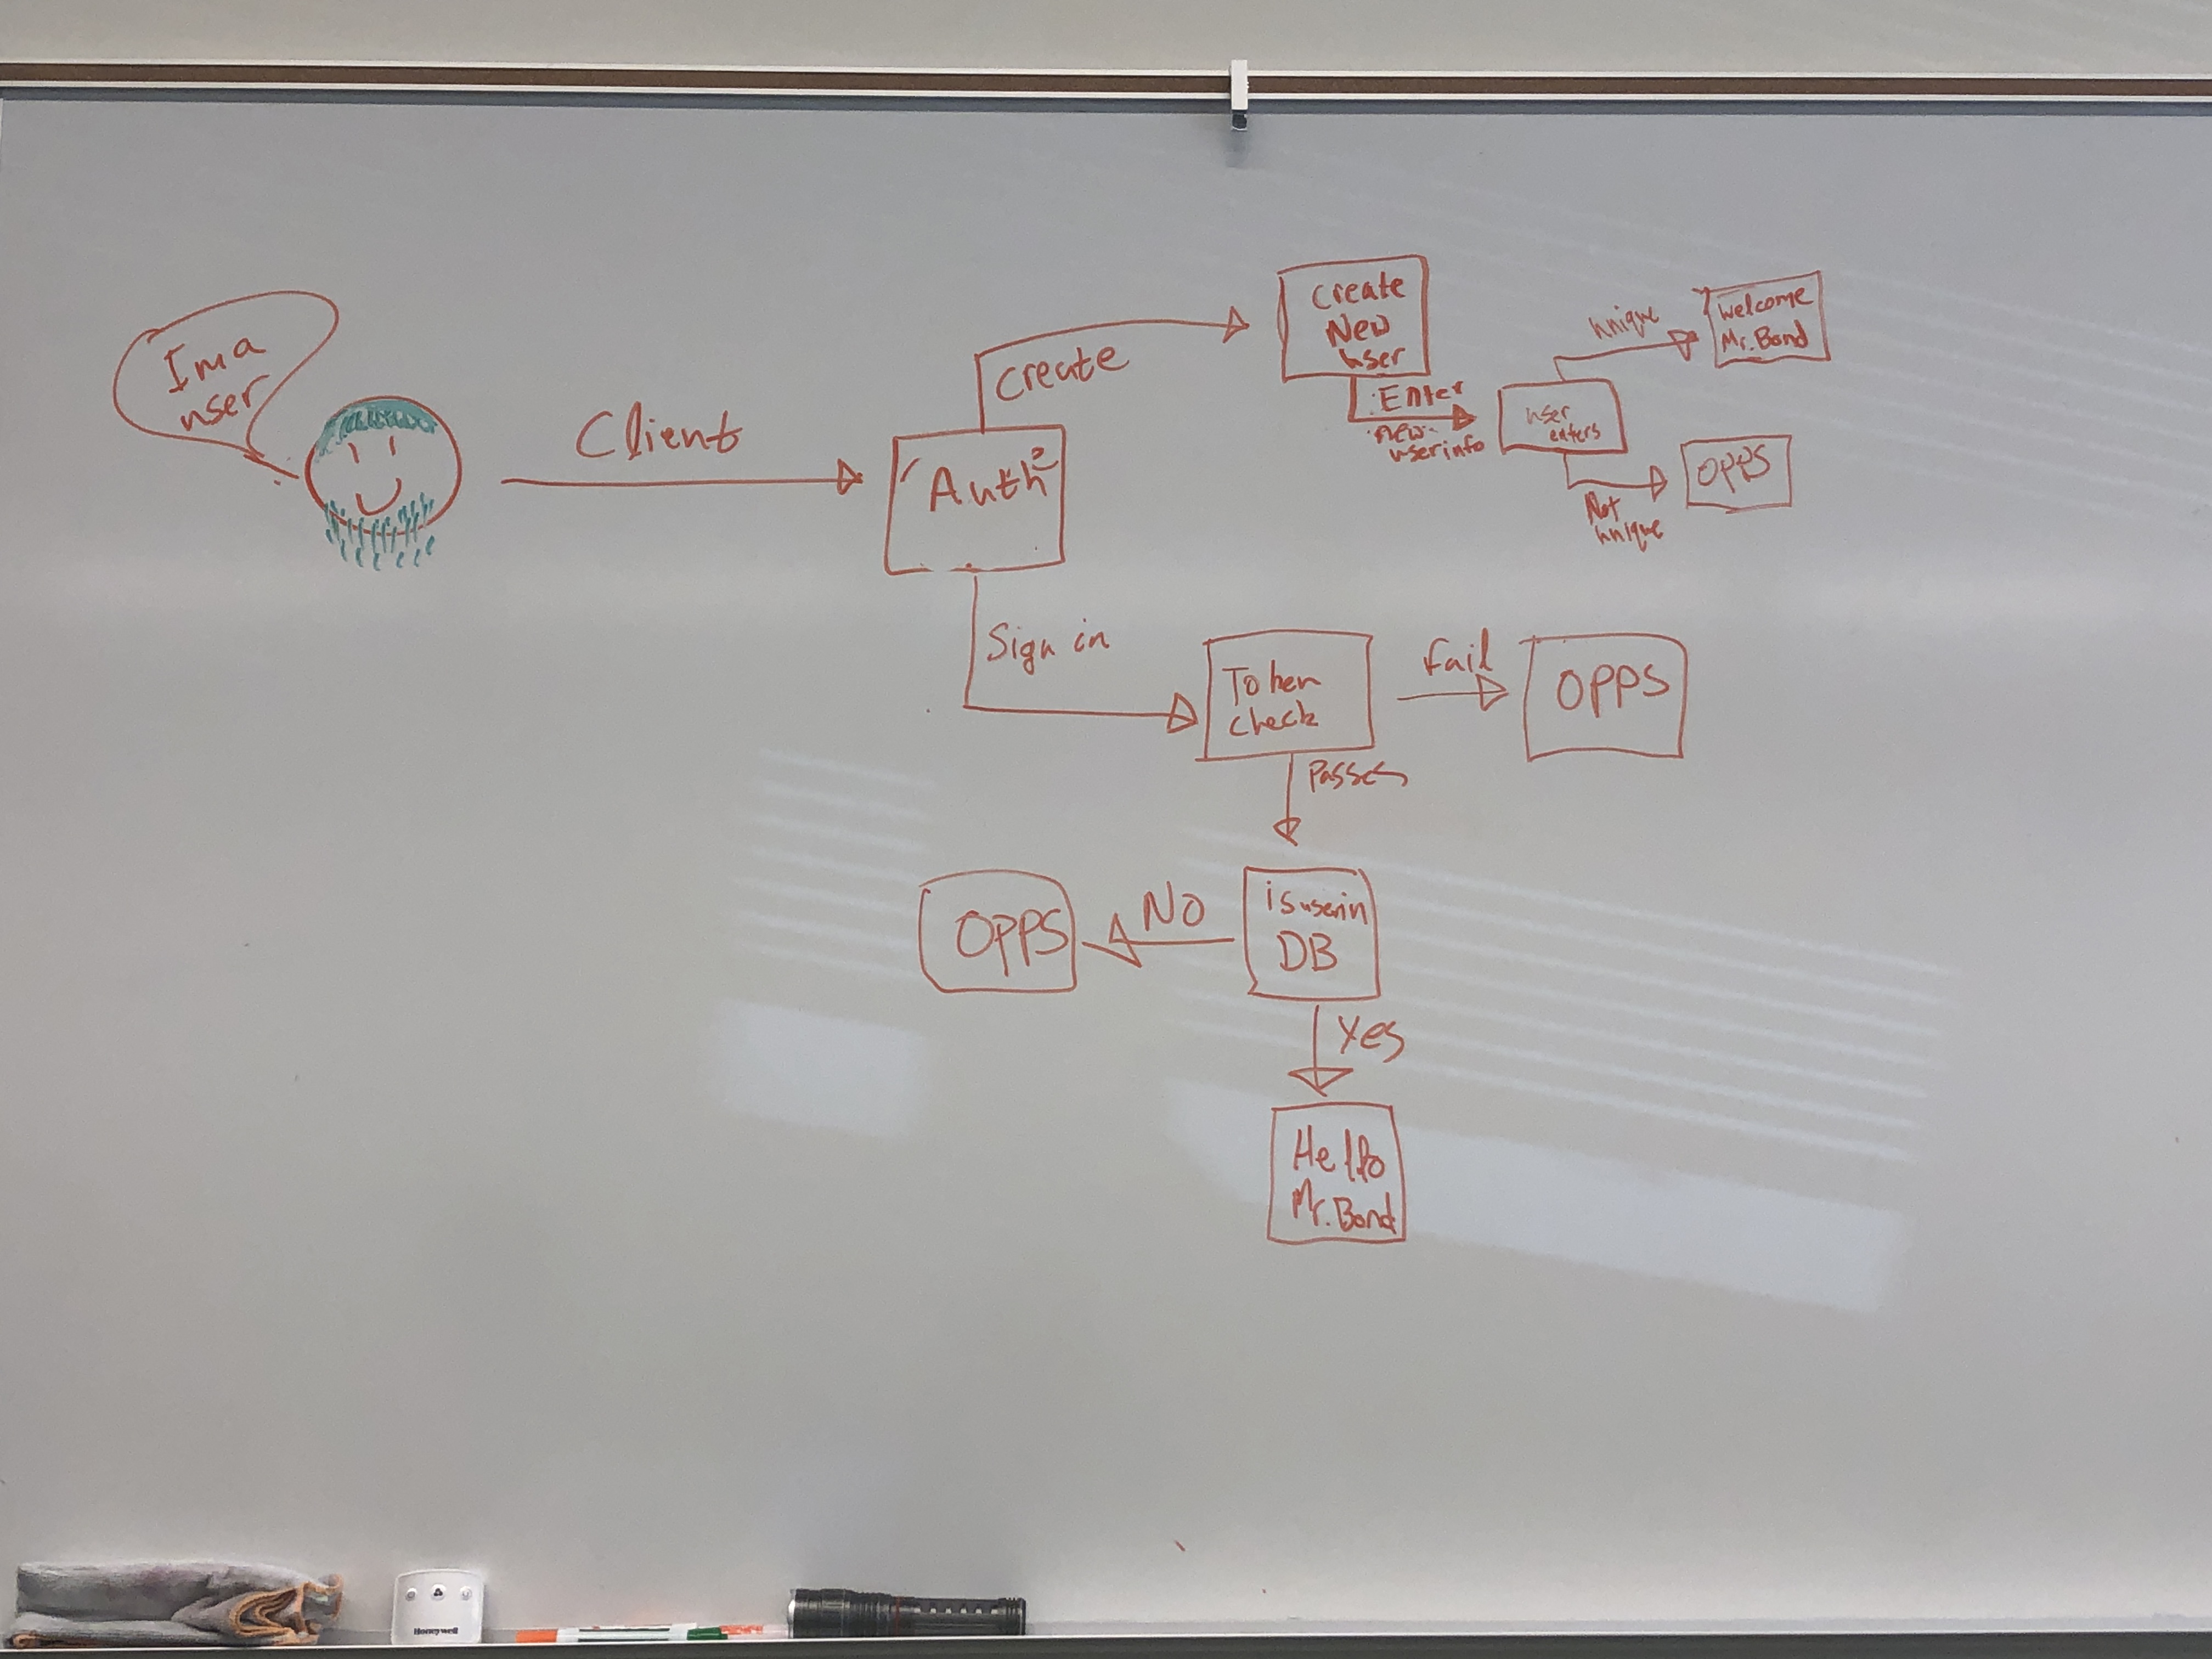 Im a
user
Client
Auth²
create
Create
New
user
Enter
new
user info
user
enters
unique
Welcome
Mr. Bond
Not
unique
OPPS
Sign in
Token
check
fail
OPPS
Passes
is user in
DB
NO
OPPS
Yes
Hello
Mr. Bond
Honeywell